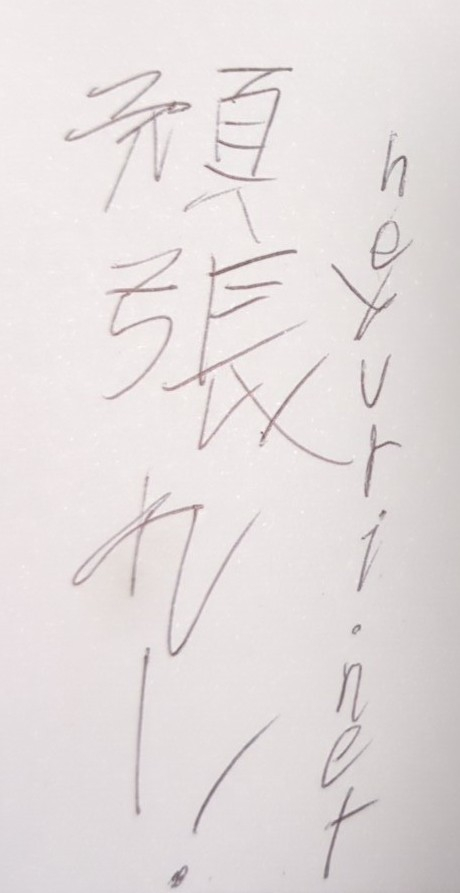 heyuri.net
頑張れー!